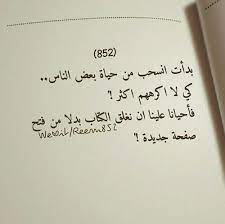 (852)
بدأت انسحب من حياة بعض الناس..
كي لا اكرههم اكثر !
فأحيانا علينا ان نغلق الكتاب بدلا من فتح
صفحة جديدة !
WeXit/Reem852